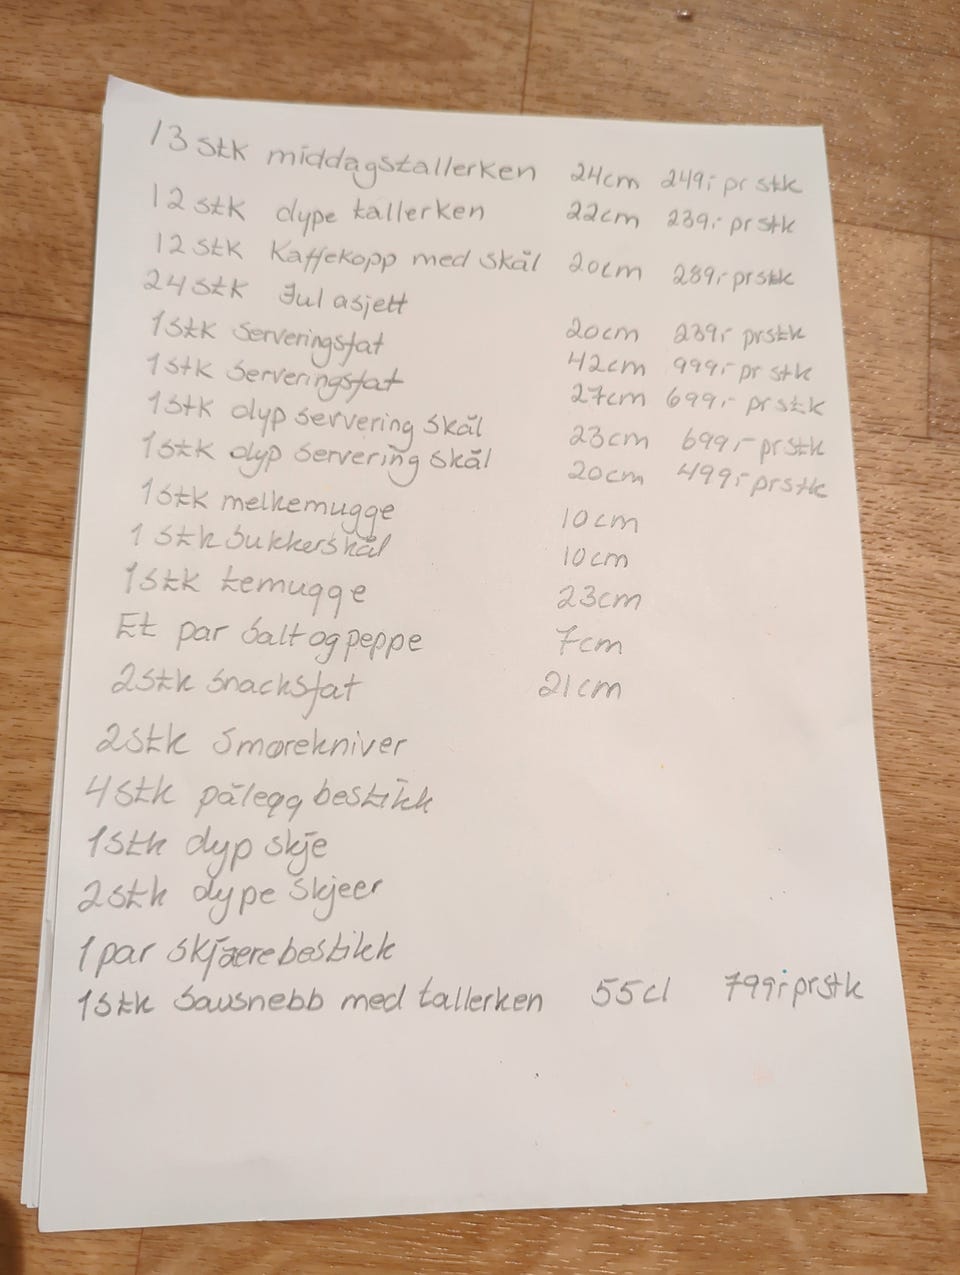 13 stk middagstallerken 24cm 249,- pr stk
12 stk dype tallerken 22cm 239,- pr stk
12 stk Kaffekopp med skål 20cm 289,- pr stk
24 stk Jul asjett 20cm 239,- pr stk
1stk serveringsfat 42cm 999,- pr stk
1stk serveringsfat 27cm 699,- pr stk
1stk dyp servering skål 23cm 699,- pr stk
1stk dyp servering skål 20cm 499,- pr stk
1stk melkemugge 10cm
1 stk sukkerskål 10cm
1stk temugge 23cm
Et par salt og peppe 7cm
2stk snacksfat 21cm
2stk smørekniver
4stk pålegg bestikk
1stk dyp skje
2stk dype skjeer
1 par skjærebestikk
1stk sausnebb med tallerken 55cl 799,- pr stk